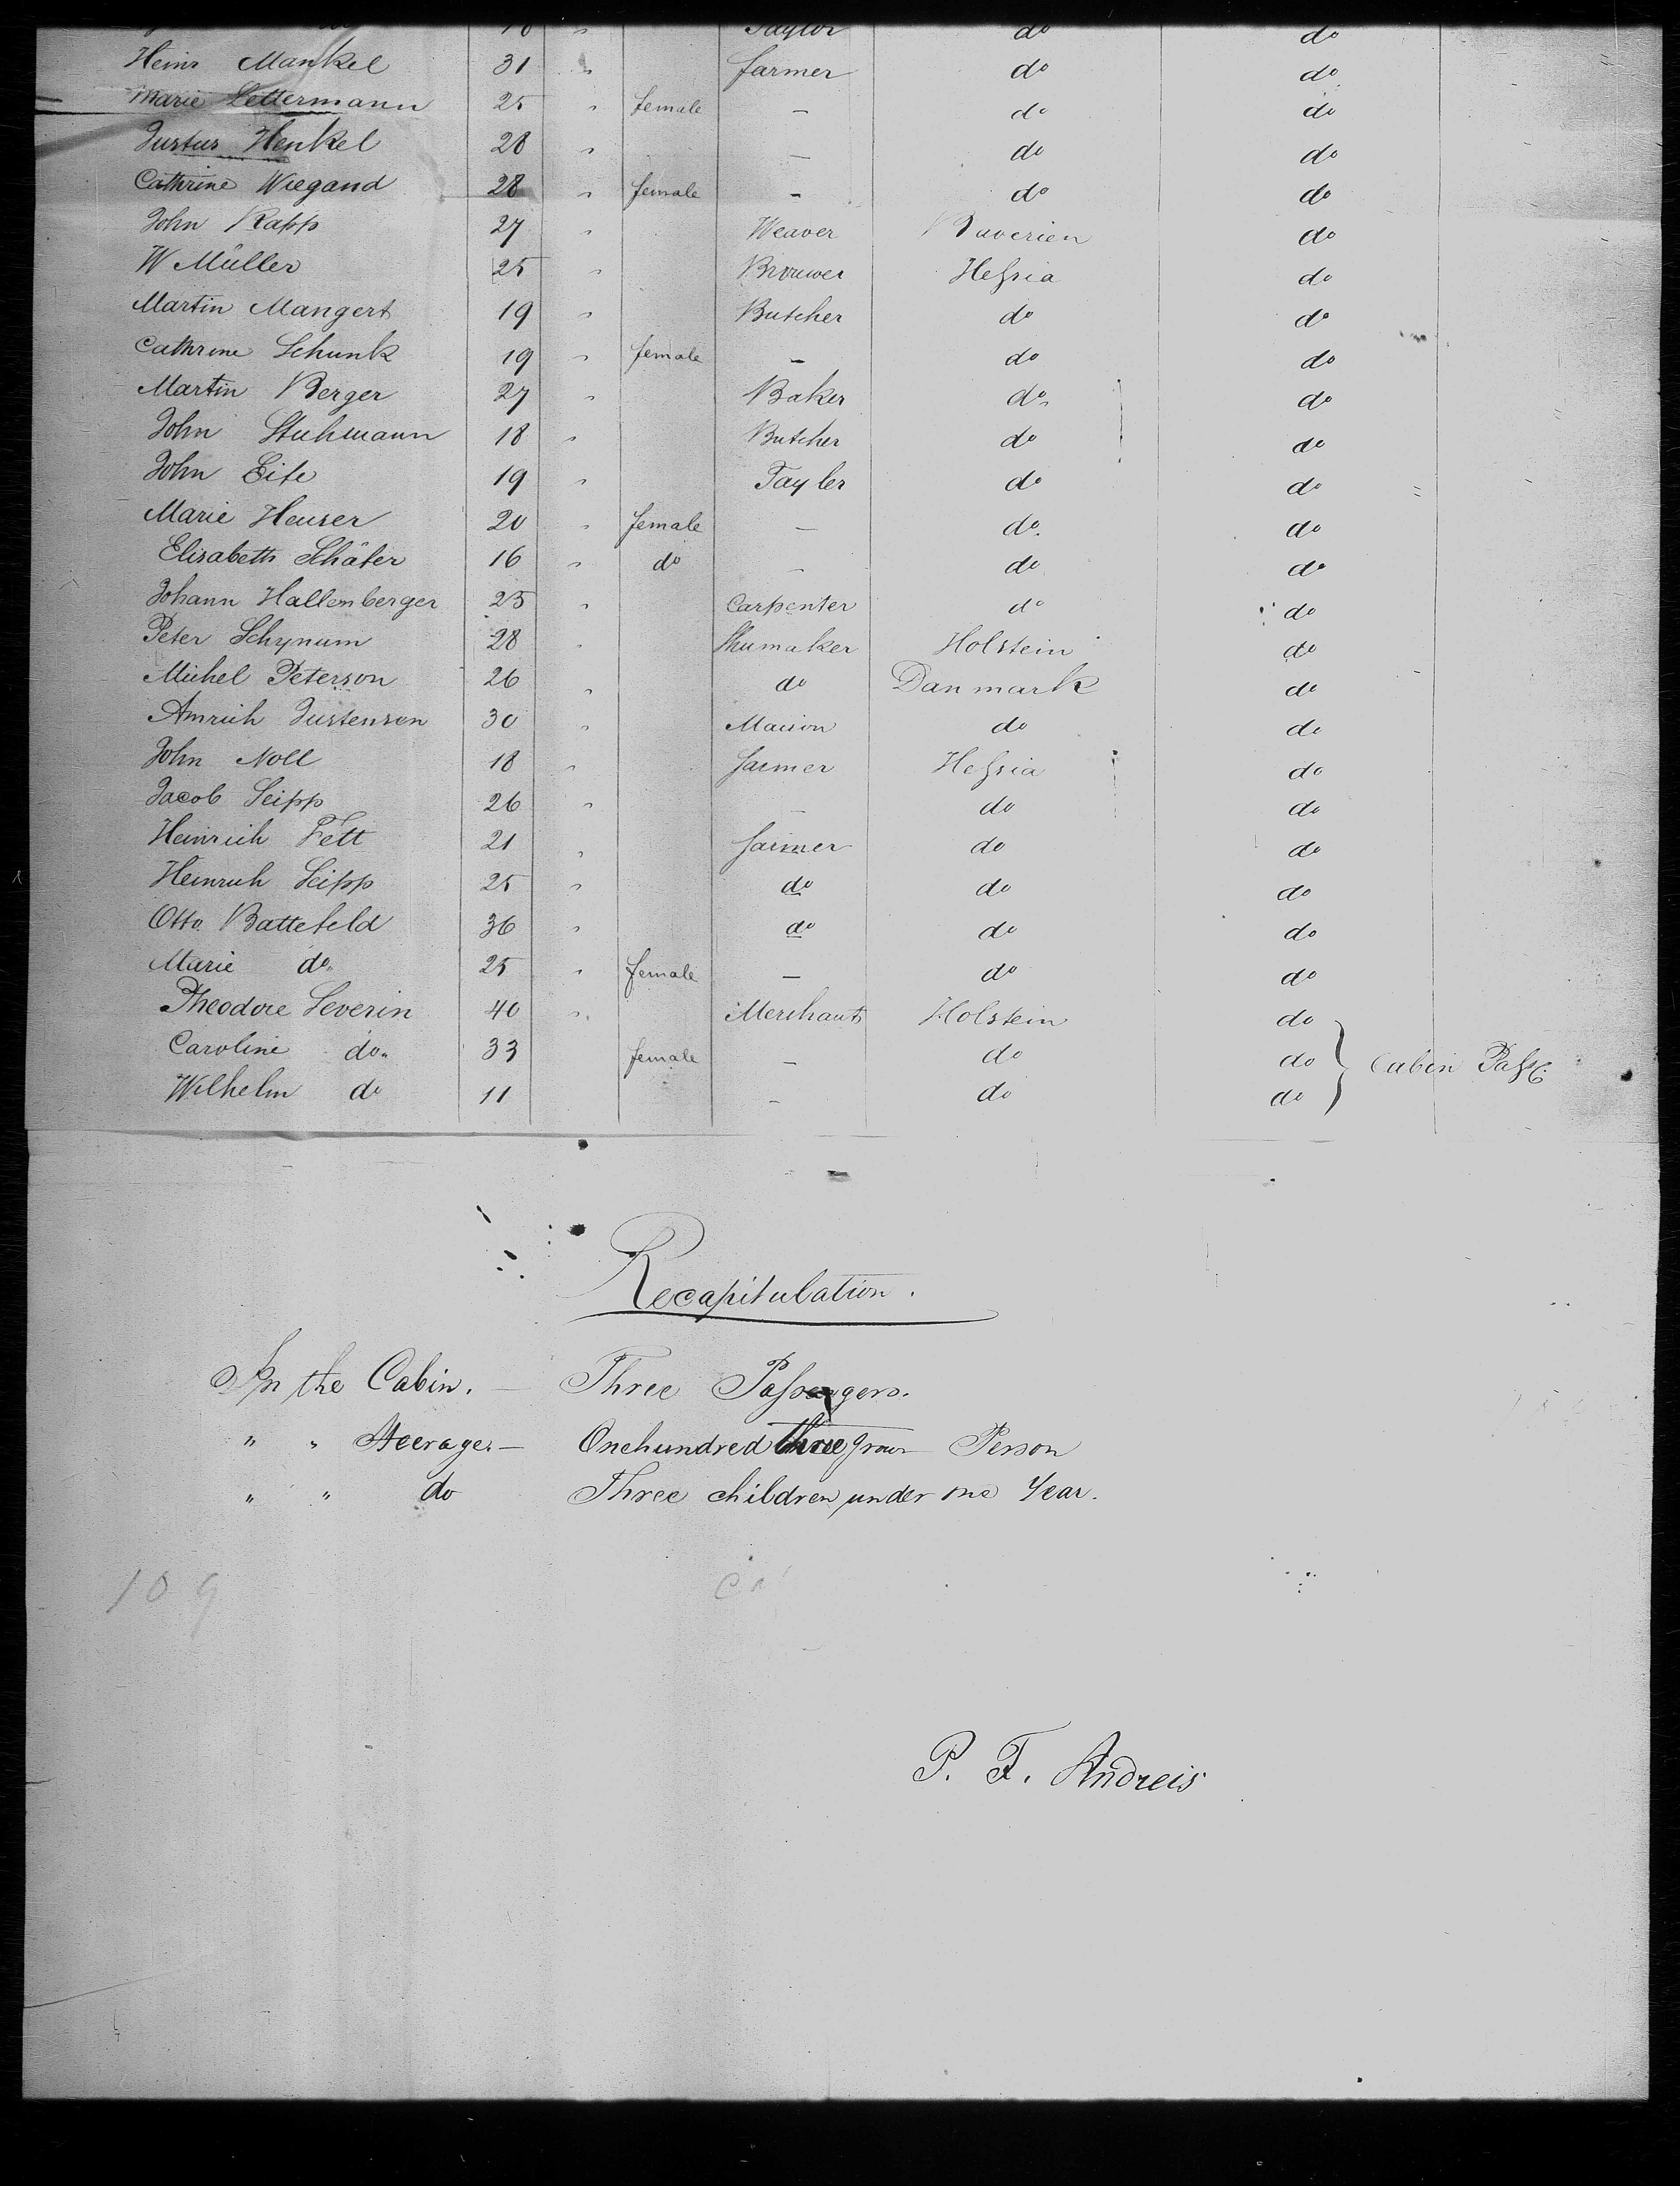 Taylor do do
Heinr Mankel 31 " farmer do do
Marie Lettermann 25 " female — do do
Justus Henkel 28 " — do do
Cathrine Wiegand 28 " female — do do
John Rapp 27 " Weaver Baverien do
W Müller 25 " Brouwer Hessia do
Martin Mangert 19 " Butcher do do
Cathrine Schunk 19 " female — do do
Martin Berger 27 " Baker do do
John Stuhmann 18 " Butcher do do
John Eife 19 " Tayler do do
Marie Heuser 20 " female — do do
Elisabeth Schäfer 16 " do — do do
Johann Hallenberger 25 " Carpenter do do
Peter Schynum 28 " Shumaker Holstein do
Michel Peterson 26 " do Danmark do
Amrich Justensen 30 " Maison do do
John Noll 18 " farmer Hessia do
Jacob Seipp 26 " — do do
Heinrich Fett 21 " farmer do do
Heinrich Seipp 25 " do do do
Otto Battefeld 36 " do do do
Marie do 25 " female — do do
Theodore Severin 40 " Merchant Holstein do
Caroline do 33 female — do do } Cabin Pass
Wilhelm do 11 — do do
Recapitulation.
In the Cabin. — Three Passengers.
" " Steerage. — Onehundred three grown Person
" " do Three children under one Year.
109
P. F. Andreis